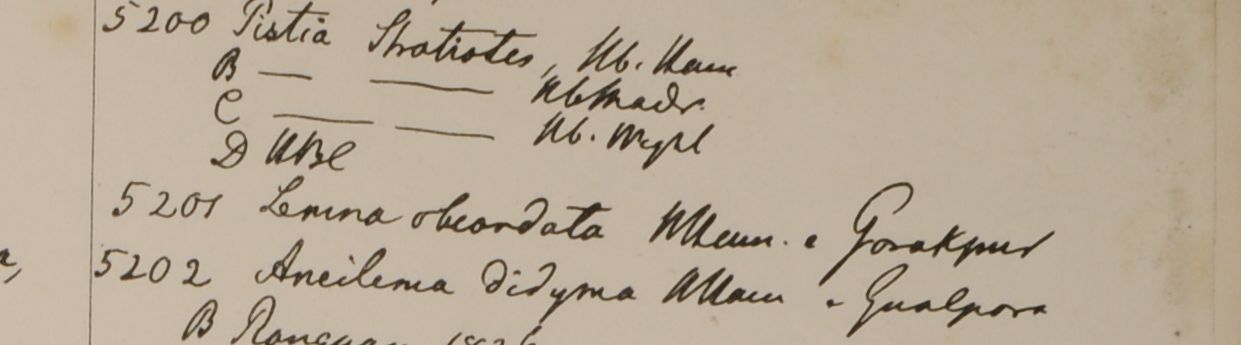 5200 Pistia Stratiotes, Hb. Ham
B — — HbMadr.
C — — Hb. Wight
D HBC
5201 Lemna obcordata HHam. e Gorakpur
5202 Aneilema didyma HHam e Gualpara
B Rangoon 1826